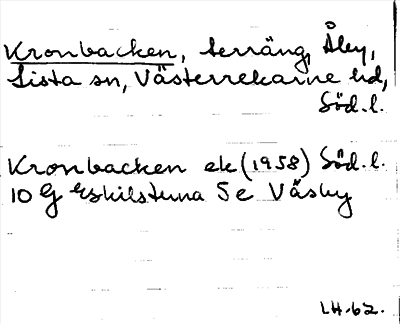 Kronbacken, terräng, Åby,
Lista sn, Västerrekarne hd,
Söd.l.
Kronbacken ek (1958) Söd.l.
10 G Eskilstuna 5 e Väsby
LH.62.